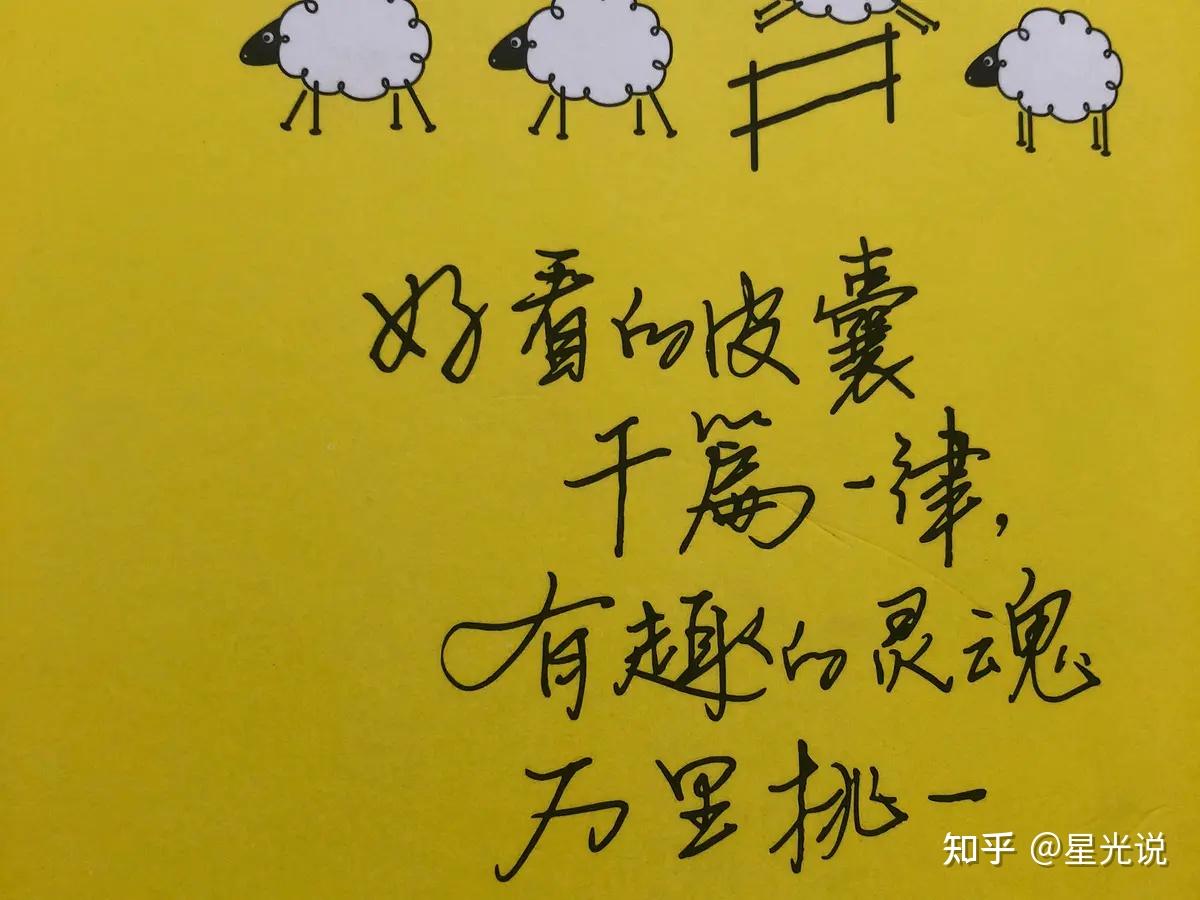 好看的皮囊
千篇一律，
有趣的灵魂
万里挑一
知乎 @星光说